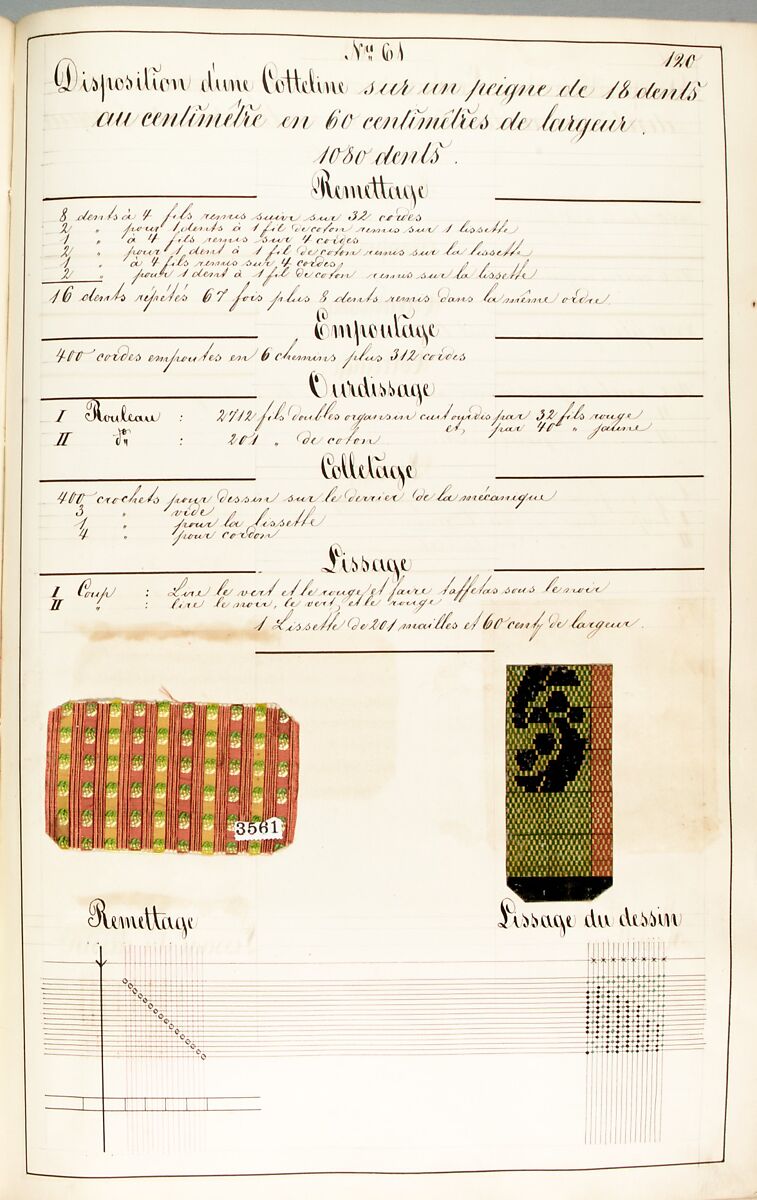 No 61
120
Disposition d'une Cotteline sur un peigne de 18 dents
au centimètre en 60 centimètres de largeur.
1080 dents.
Remettage
8 dents à 4 fils remis suivi sur 32 cordes
2 " pour 1 dents à 1 fil de coton remis sur 1 lissette
1 " à 4 fils remis sur 4 cordes
2 " pour 1 dent à 1 fil de coton remis sur la lissette
1 " à 4 fils remis sur 4 cordes
2 " pour 1 dent à 1 fil de coton remis sur la lissette
16 dents répétés 67 fois plus 8 dents remis dans la même ordre
Empoutage
400 cordes empoutes en 6 chemins plus 312 cordes
Ourdissage
I Rouleau : 2712 fils doubles organsin cuit ourdis par 32 fils rouge
et, par 40 " jaune
II do : 201 " de coton
Colletage
400 crochets pour dessin sur le derrier de la mécanique
3 " vide
1 " pour la lissette
4 " pour cordon
Lissage
I Coup : Lire le vert et le rouge, et faire taffetas sous le noir
II " : lire le noir, le vert, et le rouge
1 Lissette de 201 mailles et 60 cent de largeur.
3561
Remettage
Lissage du dessin